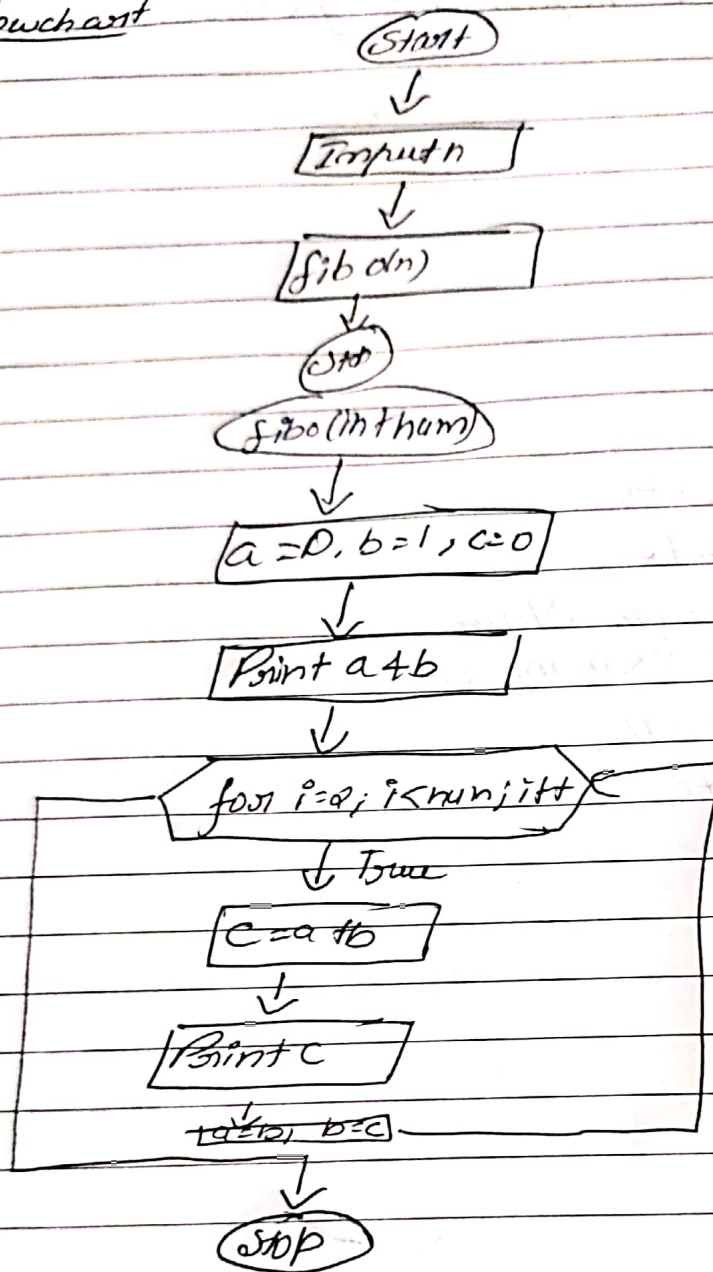 owchart
Start
Input n
fibo(n)
Stop
fibo(int num)
a=0, b=1, c=0
Print a & b
for i=2; i<num; i++
True
c=a+b
Print c
a=b, b=c
Stop